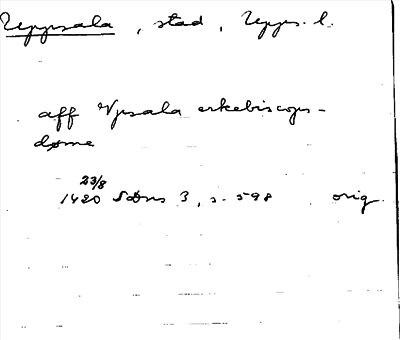 Uppsala, stad, Upps. l.
aff Vpsala erkebiscops-
døme
23/8
1420 SDns 3, s. 598 orig.